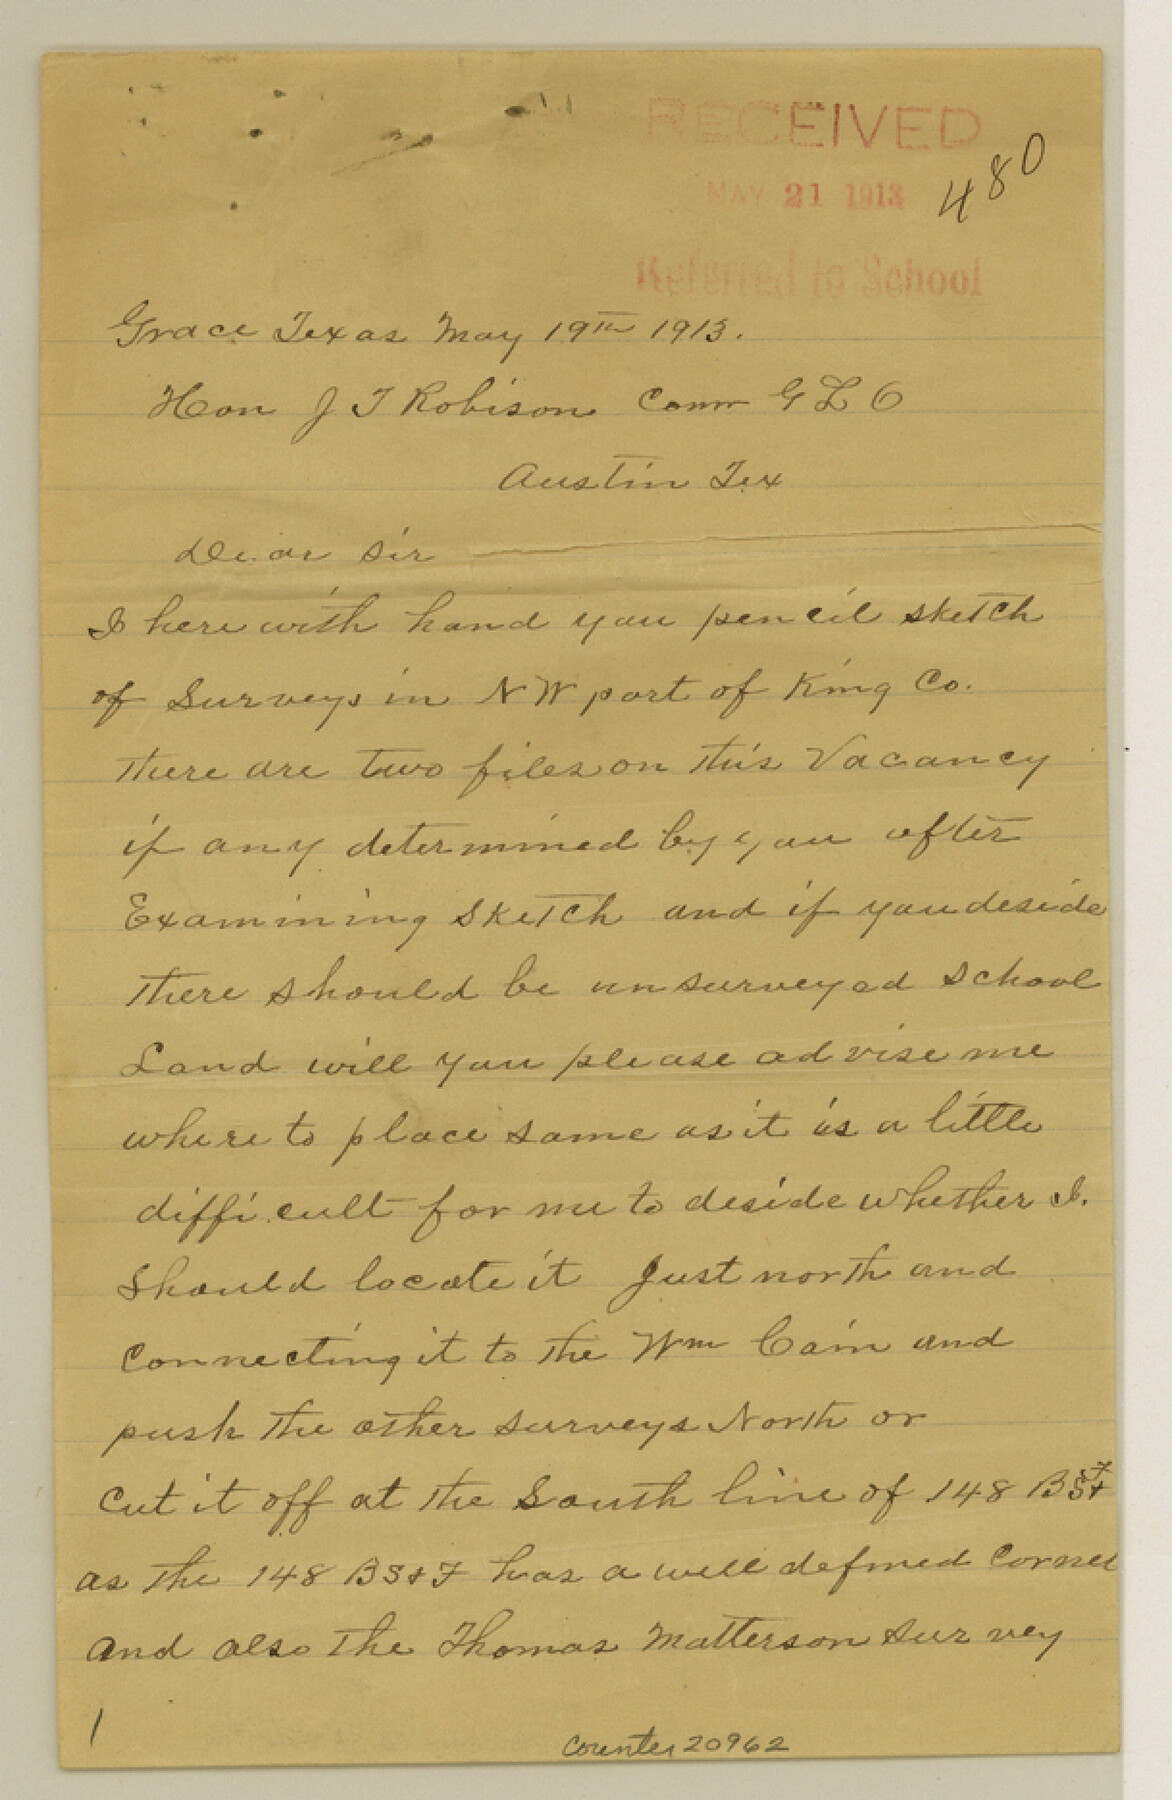 RECEIVED
MAY 21 1913
480
Referred to School
Grace Texas May 19th 1913.
Hon J T Robison Comr G L O
Austin Tex
Dear Sir
I here with hand you pencil sketch
of Surveys in NW part of King Co.
there are two files on this Vacancy
if any determined by you after
Examining sketch and if you deside
there should be unsurveyed school
Land will you please advise me
where to place same as it is a little
difficult for me to deside whether I.
Should locate it Just north and
Connecting it to the Wm Cain and
push the other surveys North or
cut it off at the South line of 148 BS&F
as the 148 BS&F has a well defined Corner
and also the Thomas Matterson survey
1
counter 20962